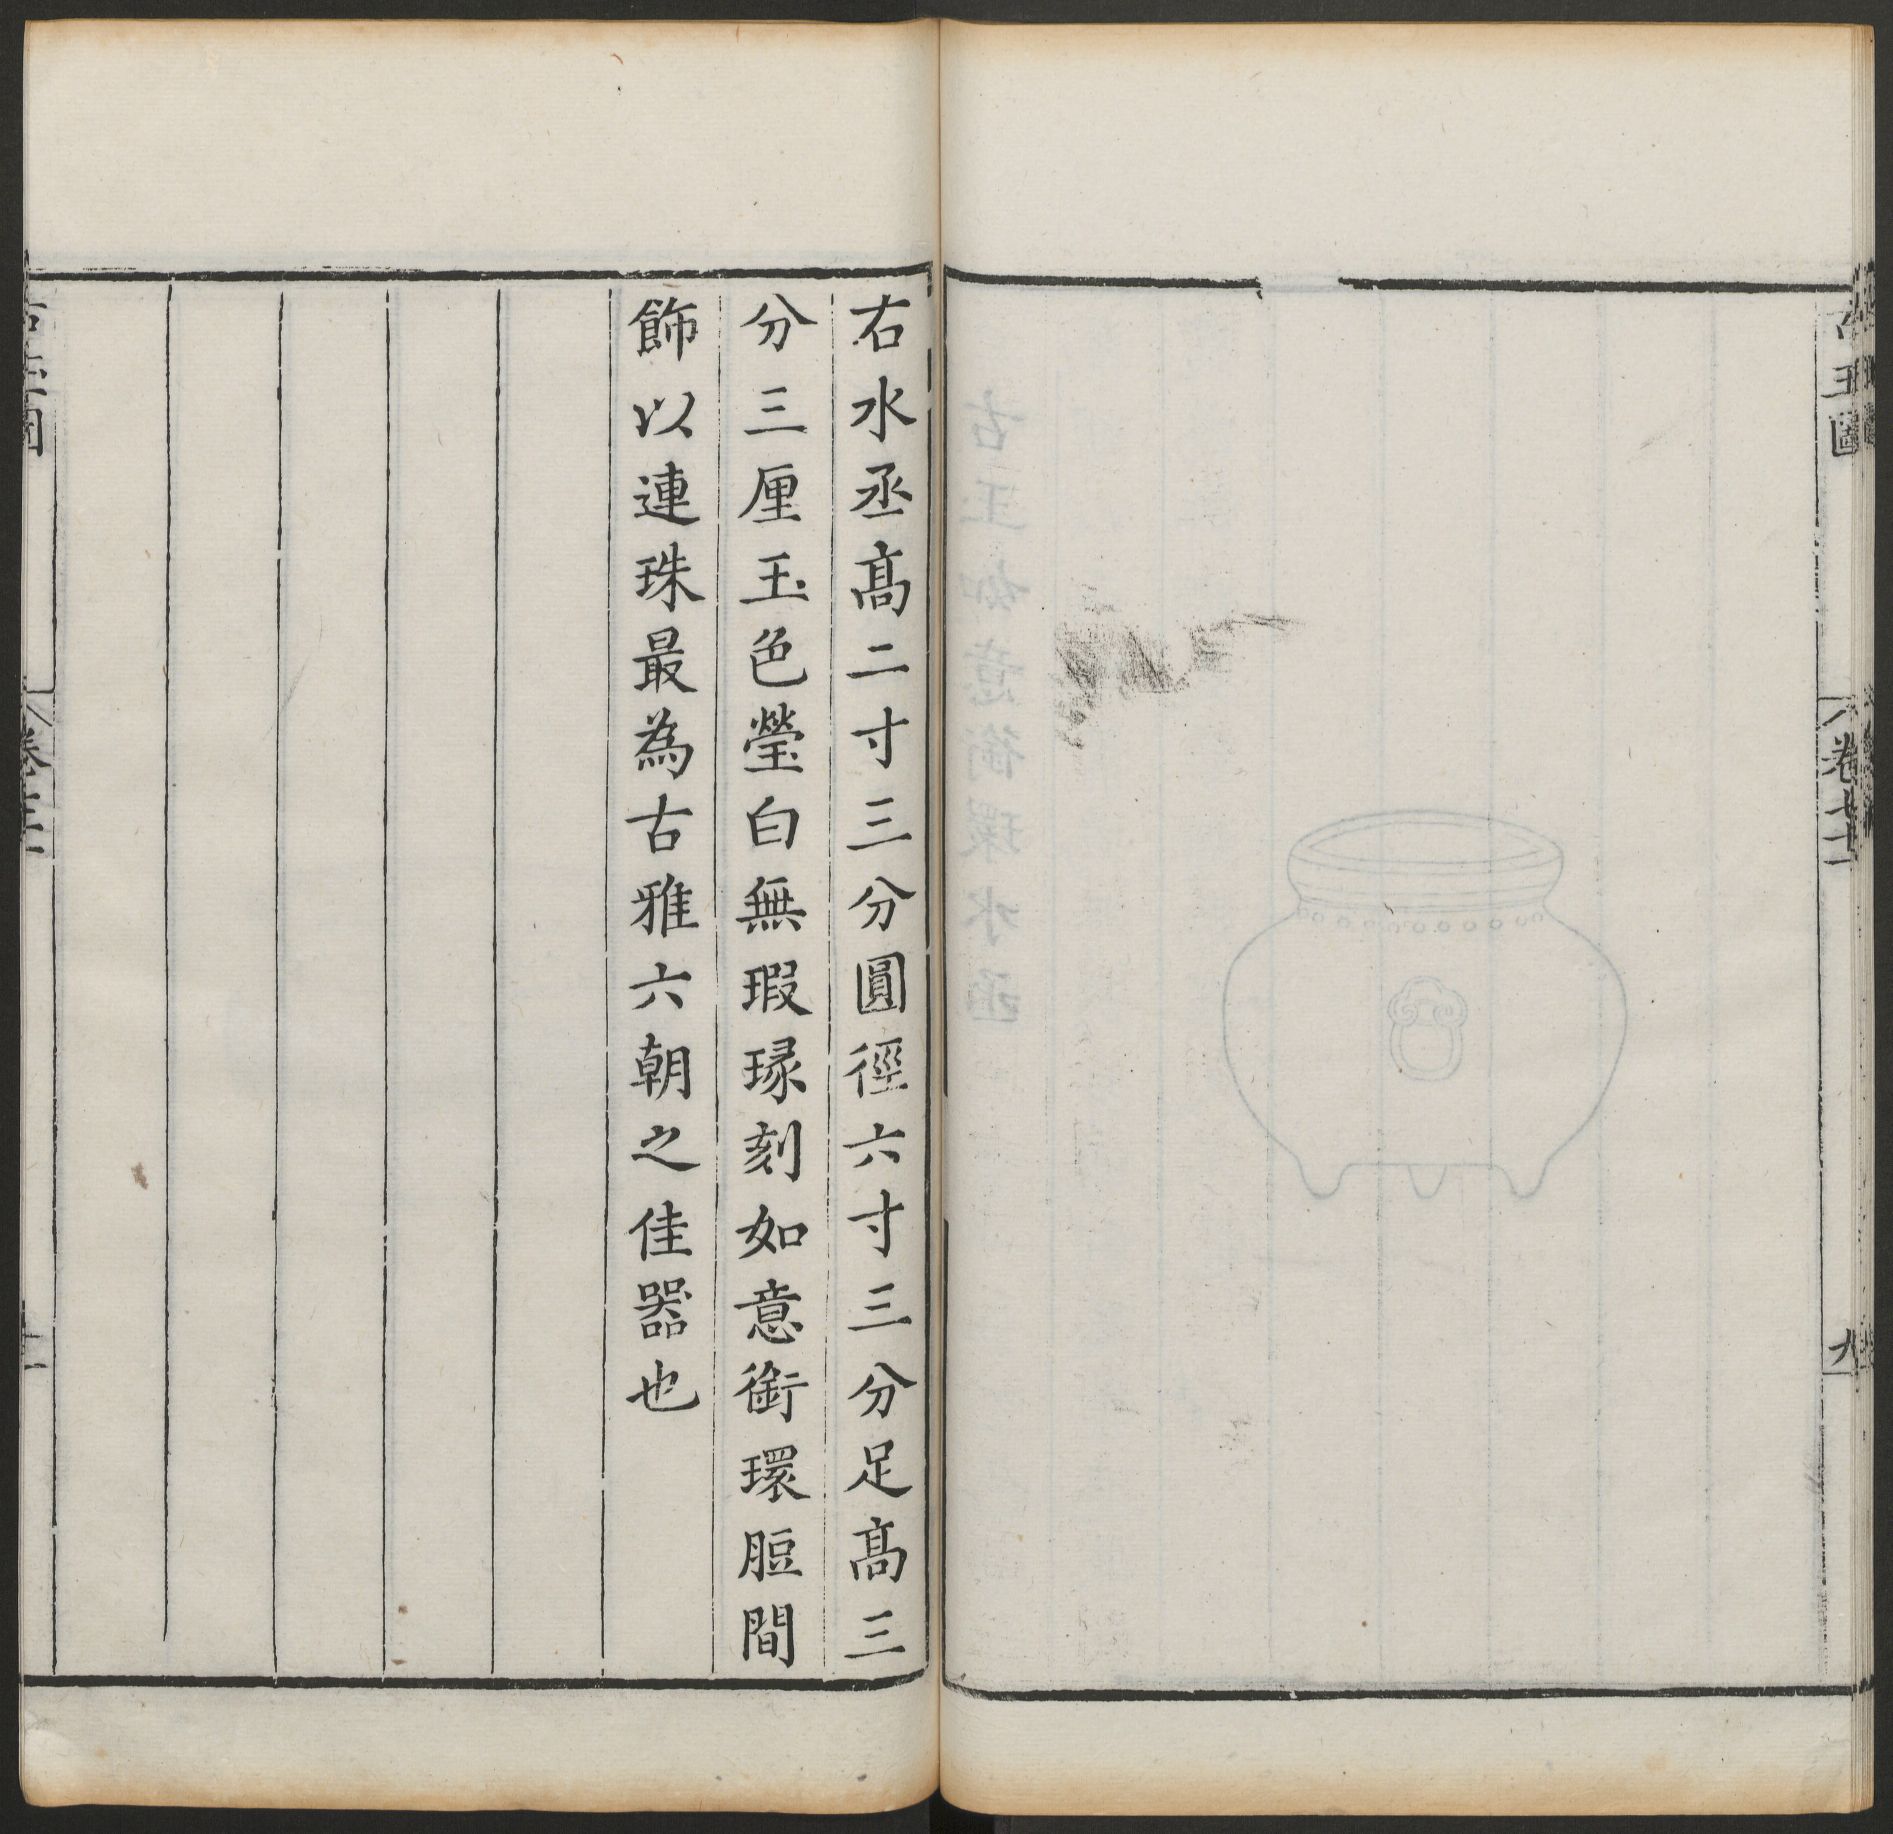 古玉圖 卷九十二 九
右水丞高二寸三分圓徑六寸三分足高三
分三厘玉色瑩白無瑕琢刻如意銜環脰間
飾以連珠最為古雅六朝之佳器也